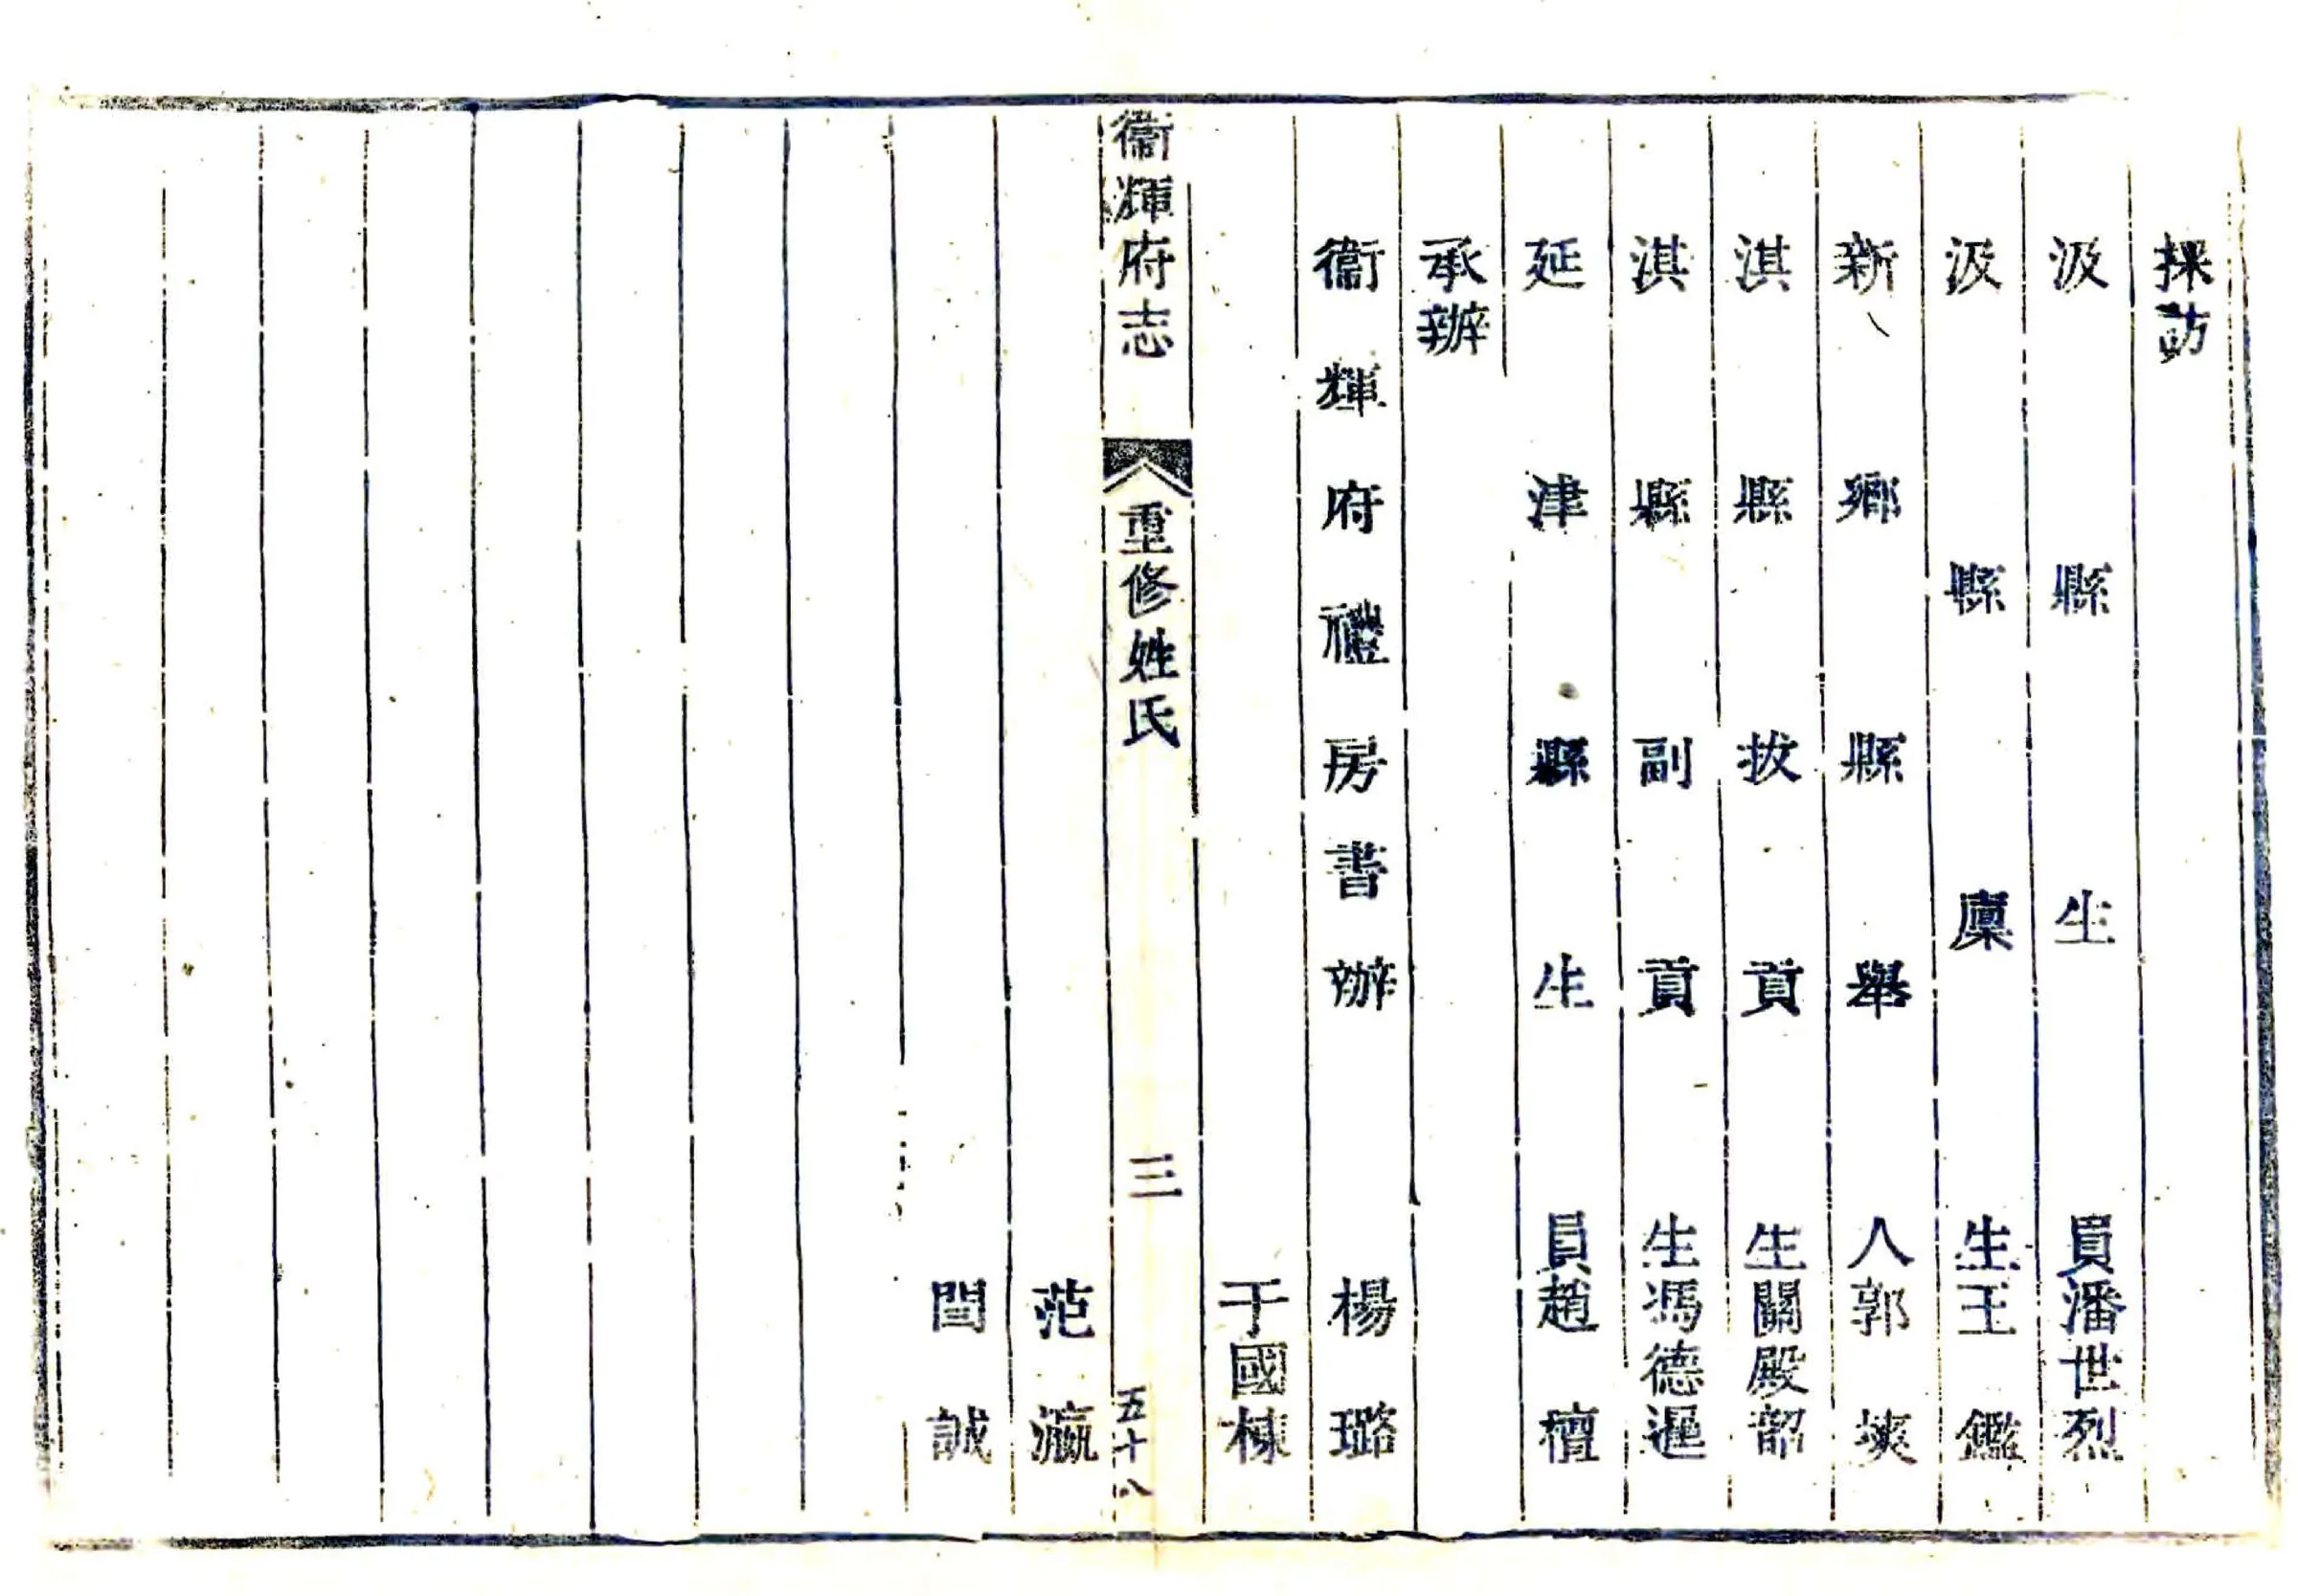 採訪
汲縣生員潘世烈
汲縣廩生王鑑
新鄉縣舉人郭塽
淇縣拔貢生關殿韶
淇縣副貢生馮德暹
延津縣生員趙檀
承辦
衞輝府禮房書辦楊璐
于國棟
衞輝府志 重修姓氏 三 五十八
范瀛
閆誠